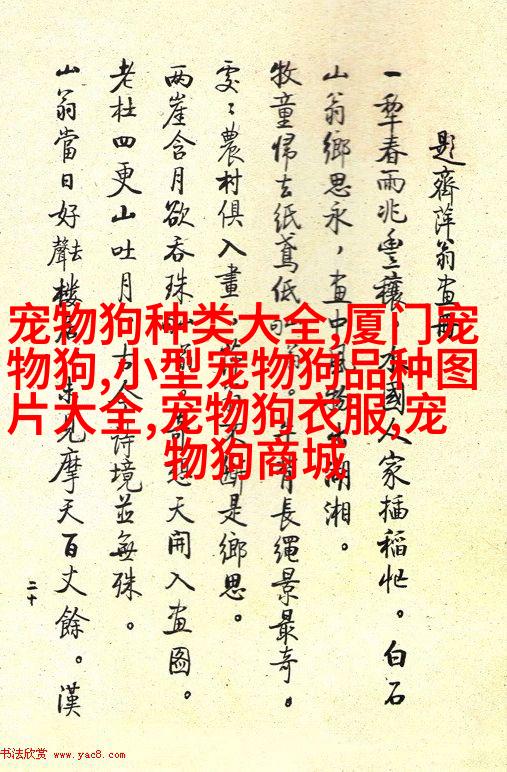 題齊萍翁畫冊
一犂春雨兆豐穰，水國人家插稻忙。白石
山翁鄉思永，畫中風物出湖湘。
牧童歸去紙鳶低 長繩景最奇。
處處農村俱入畫， 是鄉思。
兩崖含月欲吞珠 天開入畫圖。
老杜四更山吐月，古人詩境並無殊。
山翁當日好去聲樓居，未見摩天百丈餘。漢
二十
宠物狗种类大全,厦门宠
物狗,小型宠物狗品种图
片大全,宠物狗衣服,宠
物狗商城
书法欣赏 www.yac8.com